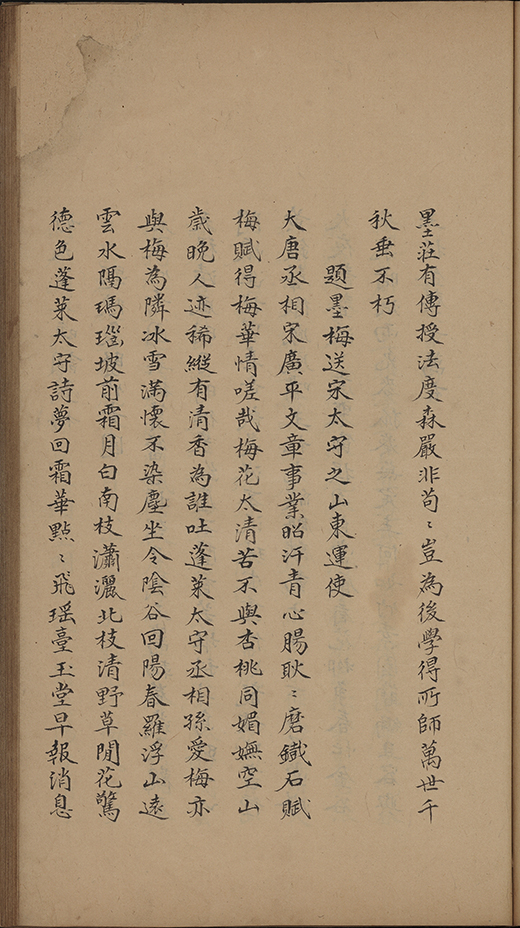 墨莊有傳授法度森嚴非苟〻豈為後學得所師萬世千
秋垂不朽
題墨梅送宋太守之山東運使
大唐丞相宋廣平文章事業昭汗青心腸耿〻磨鐡石賦
梅賦得梅華情嗟哉梅花太清苦不與杏桃同媚嫵空山
歲晚人迹稀縱有清香為誰吐蓬萊太守丞相孫愛梅亦
與梅為隣冰雪滿懷不染塵坐令陰谷回陽春羅浮山遠
雲水隔瑪瑙坡前霜月白南枝瀟灑北枝清野草閒花驚
德色蓬萊太守詩夢回霜華點〻飛瑶臺玉堂早報消息